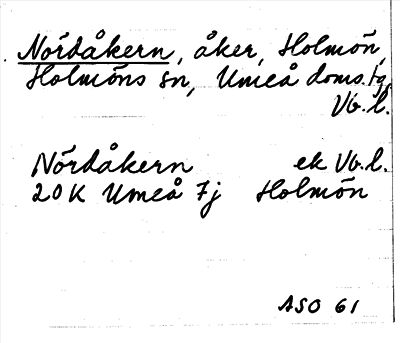 Nördåkern, åker, Holmön,
Holmöns sn, Umeå doms.tg
Vb.l.
Nördåkern ek Vb.l.
20K Umeå 7j Holmön
ASO 61